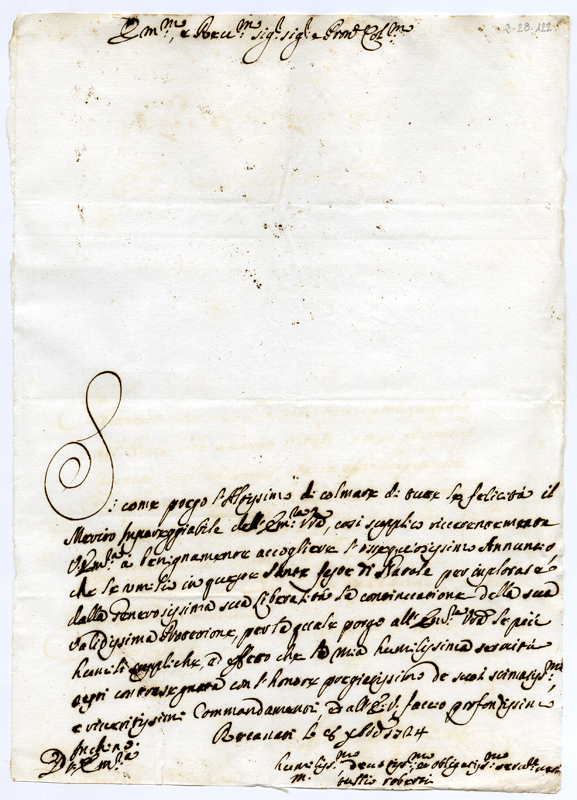 3-28-122
Em.mo, e Rev.mo Sig.r Sig.r e Pron Col.mo
Si come prego l'Altissimo di colmare di tutte le felicità il
Merito impareggiabile dell'Em.za V.ra, così supplico riverentemente
V. Em.za a benignamente accogliere l'ossequiosissimo Annunzio
che le umilio in queste Sante feste di Natale per implorare
dalla generosissima sua liberalità la continuazione della sua
validissima Protezione, per la quale porgo all'Em.za V.ra le più
humili suppliche, ad effetto che la mia humilissima servitù
resti contrasegnata con l'honore pregiatissimo de suoi stimatiss.mi
e riveritissimi Commandamenti, e all'E. V. faccio profondissimo
Inchino.
Recanati li 8 Xbre 1724
D. V. Em.za
humiliss.mo devotiss.mo et obligatiss.mo
Tullio Roberti